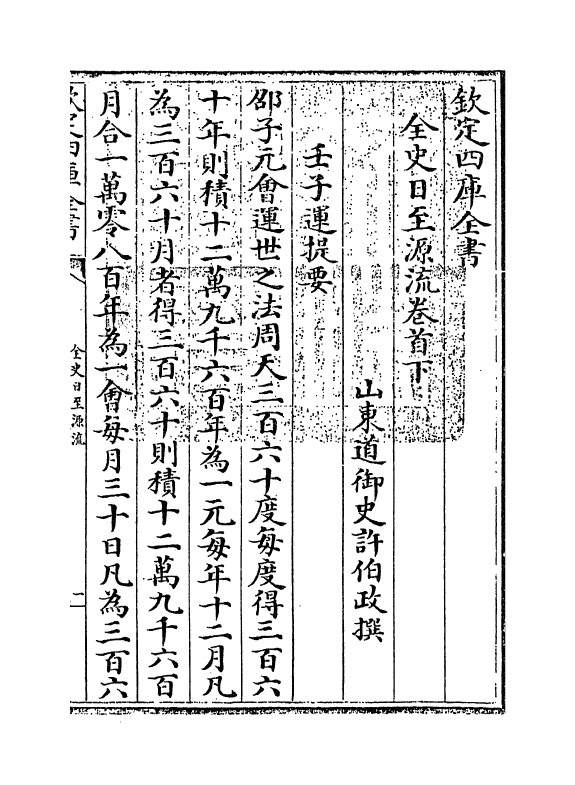 欽定四庫全書
全史日至源流卷首下
山東道御史許伯政撰
壬子運提要
邵子元會運世之法周天三百六十度每度得三百六
十年則積十二萬九千六百年為一元每年十二月凡
為三百六十月者得三百六十則積十二萬九千六百
月合一萬零八百年為一會每月三十日凡為三百六
欽定四庫全書
全史日至源流